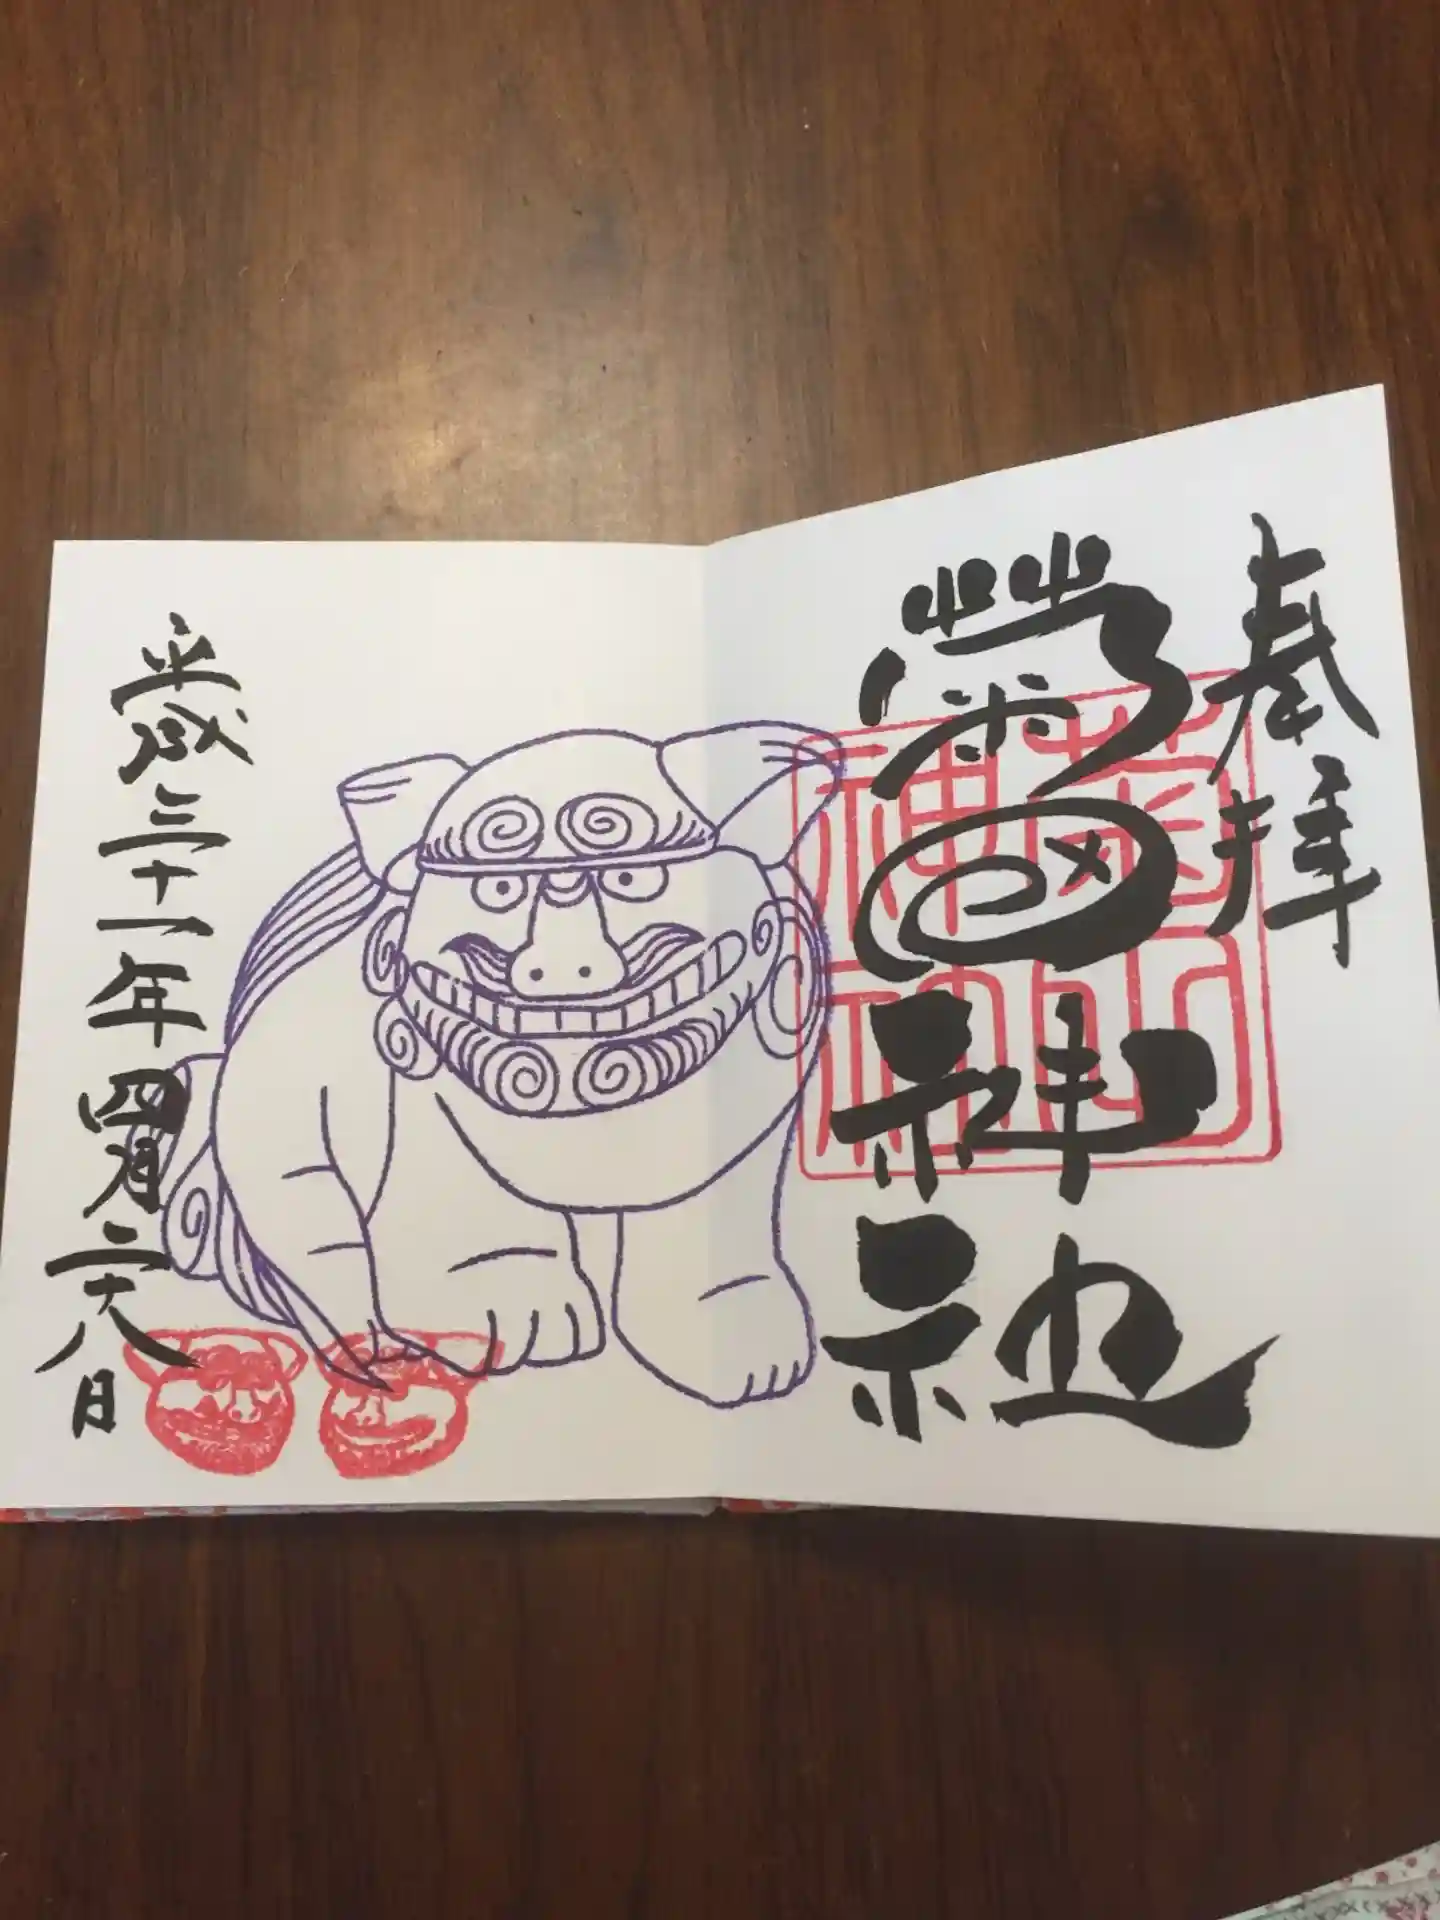 奉拝
菊田神社
平成三十一年四月二十八日